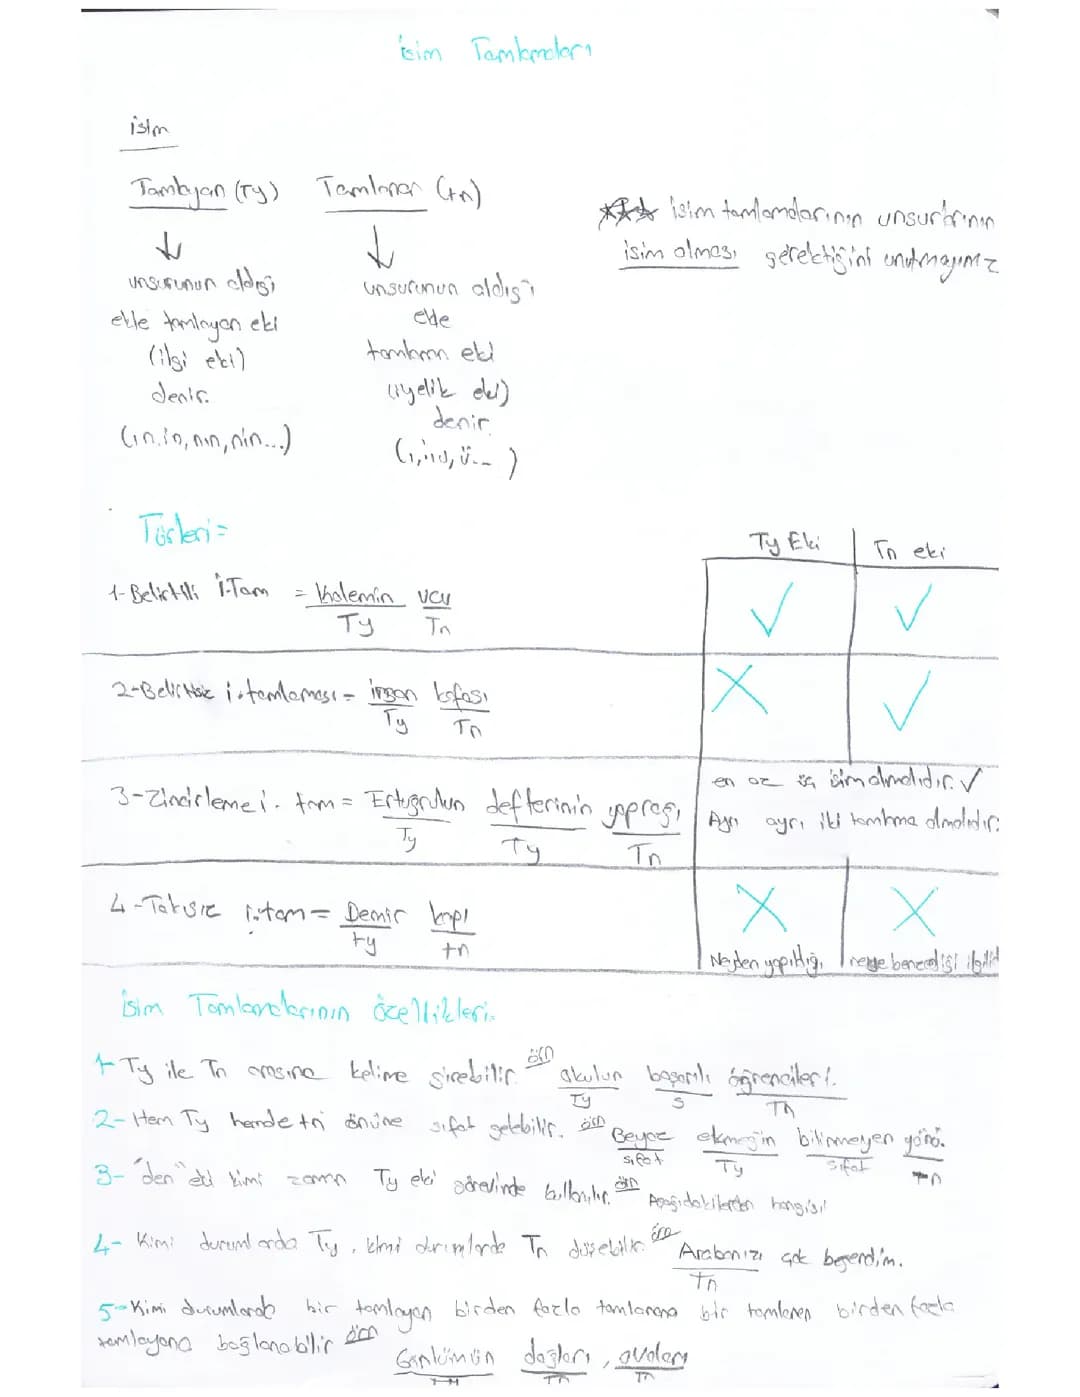 İsim Tamlamaları
isim
Tamlayan (Ty) Tamlanan (tn)
*** isim tamlamalarının unsurlarının
isim olması gerektiğini unutmayınız
unsurunun aldığı
ekle tamlayan eki
(ilgi eki)
denir.
(ın, in, nın, nin...)
unsurunun aldığı
ekle
tamlanan eki
(iyelik eki)
denir.
(ı, i, u, ü... )
Türleri =
Ty Eki Tn eki
1- Belirtili İ.Tam = Kalemin ucu
Ty Tn
2- Belirtisiz i. tamlaması = insan kafası
Ty Tn
3- Zincirleme i. tam = Ertuğrulun defterinin yaprağı
Ty Ty Tn
en az üç isim olmalıdır. ✓
Ayrı ayrı iki tamlama olmalıdır.
4- Takısız i.tam = Demir kapı
ty tn
Neyden yapıldığı, neye benzediği ilgilid
İsim Tamlamalarının özellikleri.
1- Ty ile Tn arasına kelime girebilir. örn okulun başarılı öğrencileri.
Ty S Tn
2- Hem Ty hemde tn önüne sıfat gelebilir. örn Beyaz ekmeğin bilinmeyen yönü.
sıfat Ty sıfat Tn
3- "den" eki kimi zaman Ty eki görevinde kullanılır. örn Aşağıdakilerden hangisi
4- Kimi durumlarda Ty, kimi durumlarda Tn düşebilir. örn Arabanızı çok beğendim.
Tn
5- Kimi durumlarda bir tamlayan birden fazla tamlanana bir tamlanan birden fazla
tamlayana bağlanabilir örn
dağları, ovaları
Tn Tn